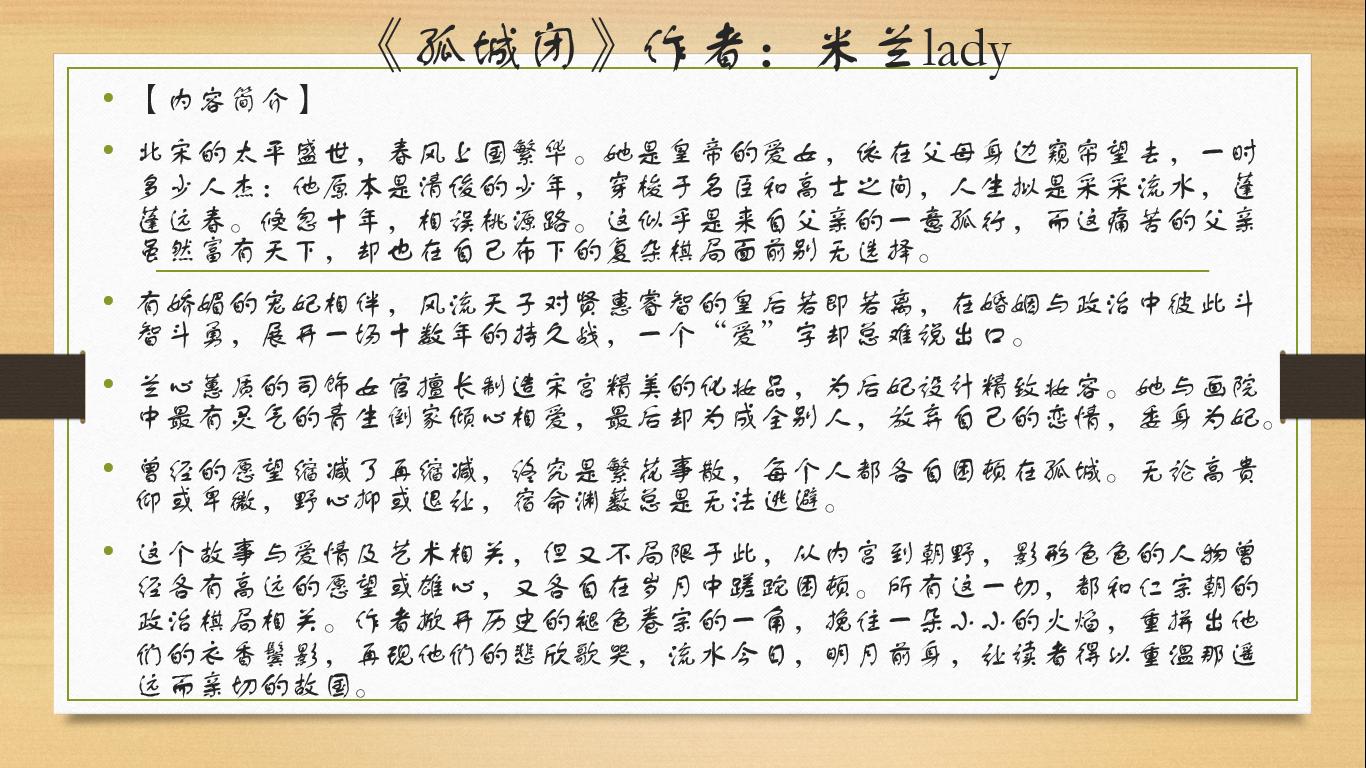 《孤城闭》作者：米兰lady
【内容简介】
北宋的太平盛世，春风上国繁华。她是皇帝的爱女，依在父母身边窥帘望去，一时
多少人杰：他原本是清俊的少年，穿梭于名臣和高士之间，人生拟是采采流水，蓬
蓬远春。倏忽十年，相误桃源路。这似乎是来自父亲的一意孤行，而这痛苦的父亲
虽然富有天下，却也在自己布下的复杂棋局面前别无选择。
有娇媚的宠妃相伴，风流天子对贤惠睿智的皇后若即若离，在婚姻与政治中彼此斗
智斗勇，展开一场十数年的持久战，一个“爱”字却总难说出口。
兰心蕙质的司饰女官擅长制造宋宫精美的化妆品，为后妃设计精致妆容。她与画院
中最有灵气的青年倒家倾心相爱，最后却为成全别人，放弃自己的恋情，委身为妃。
曾经的愿望缩减了再缩减，终究是繁花事散，每个人都各自困顿在孤城。无论高贵
仰或卑微，野心抑或退让，宿命渊薮总是无法逃避。
这个故事与爱情及艺术相关，但又不局限于此，从内宫到朝野，影形色色的人物曾
经各有高远的愿望或雄心，又各自在岁月中蹉跎困顿。所有这一切，都和仁宗朝的
政治棋局相关。作者掀开历史的褪色卷宗的一角，挽住一朵小小的火焰，重拼出他
们的衣香鬓影，再现他们的悲欣歌哭，流水今日，明月前身，让读者得以重温那遥
远而亲切的故国。